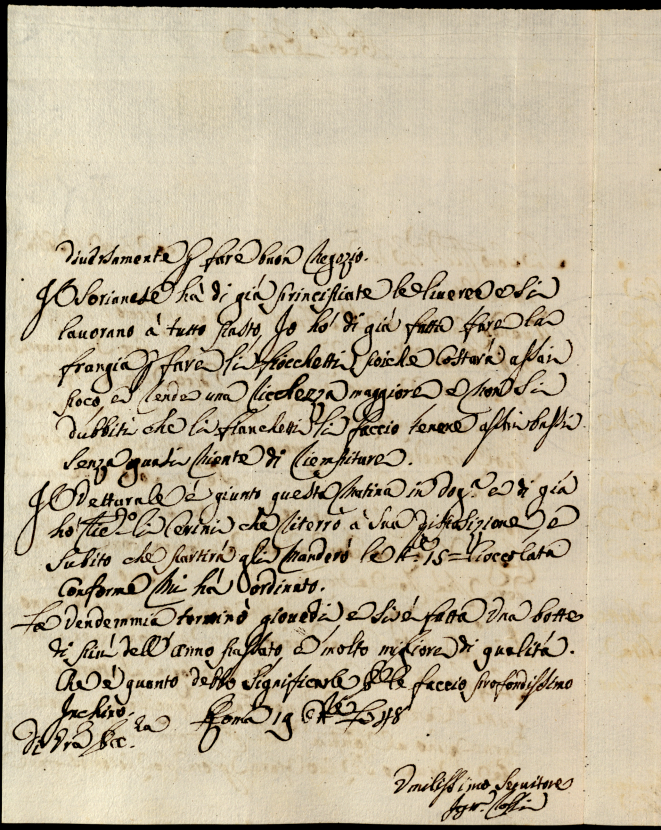 diversamente p fare buon Negozio.
Il Sorianese hà di già principiate le livere e si
lavorano à tutto pasto, Io hò di già fatta fare la
frangia p fare li fiocchetti, poiche costarà assai
poco e rende una ricchezza maggiore e non si
dubbiti che li fianchetti li faccio tenere assai bassi
senza quasi niente di riempiture.
Il Vetturale è giunto questa Matina in Dog.ª e di già
hò li che riterrò à sua disposizione e
subito che partirà gli manderò le 15 = Cioccolata
conforme Mi hà ordinato.
La Vendemmia terminò giovedì e si è fatta una botte
di più dell'anno passato e molto migliore di qualità.
Che è quanto debbo significarle e le faccio profondissimo
Inchino.
di Vra Ecc.za Roma 19 8bre 1748
Umilissimo Servitore